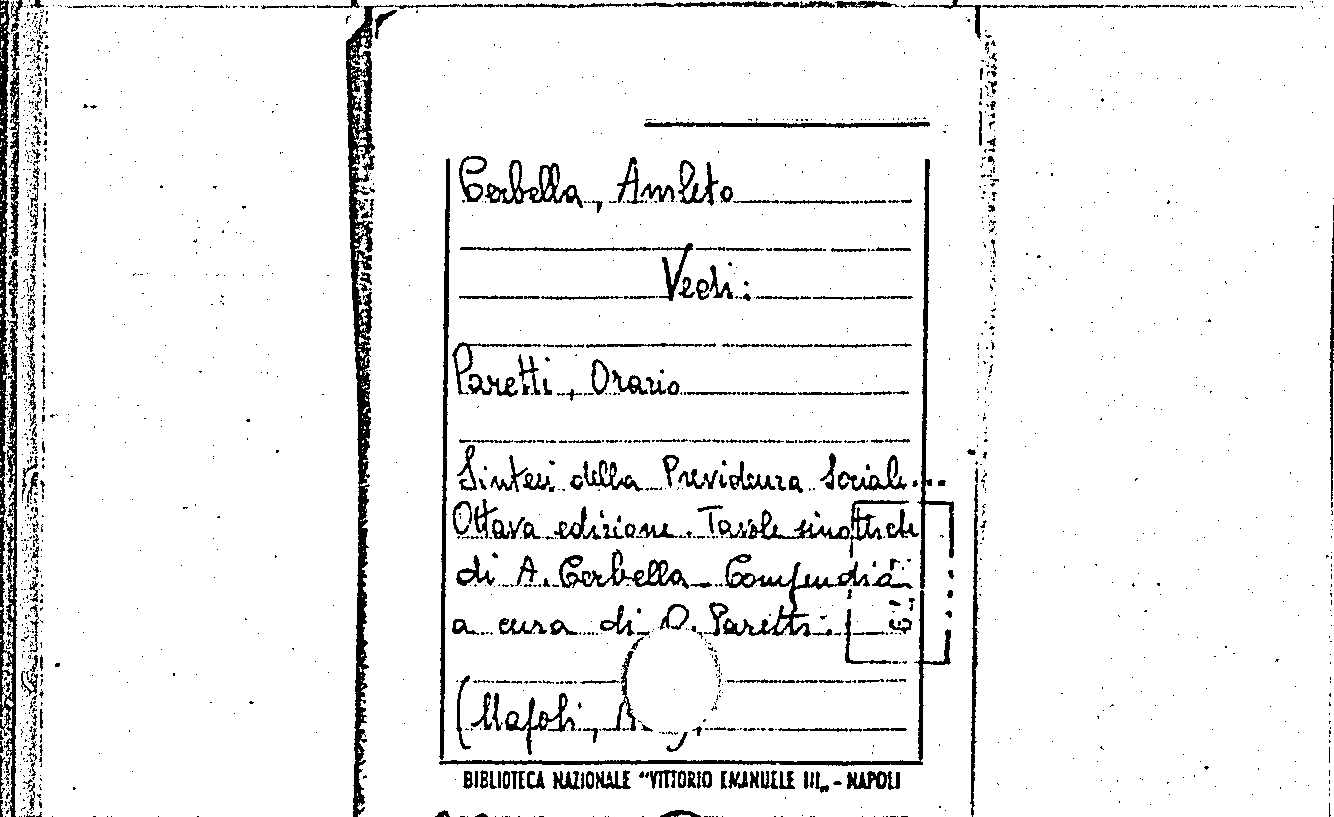 Cerbella, Amleto
Vedi:
Paretti, Orazio
Sintesi della Previdenza Sociale...
Ottava edizione. Tavole sinottiche
di A. Cerbella - Compendia
a cura di O. Paretti.
(Napoli,
BIBLIOTECA NAZIONALE "VITTORIO EMANUELE III„ - NAPOLI